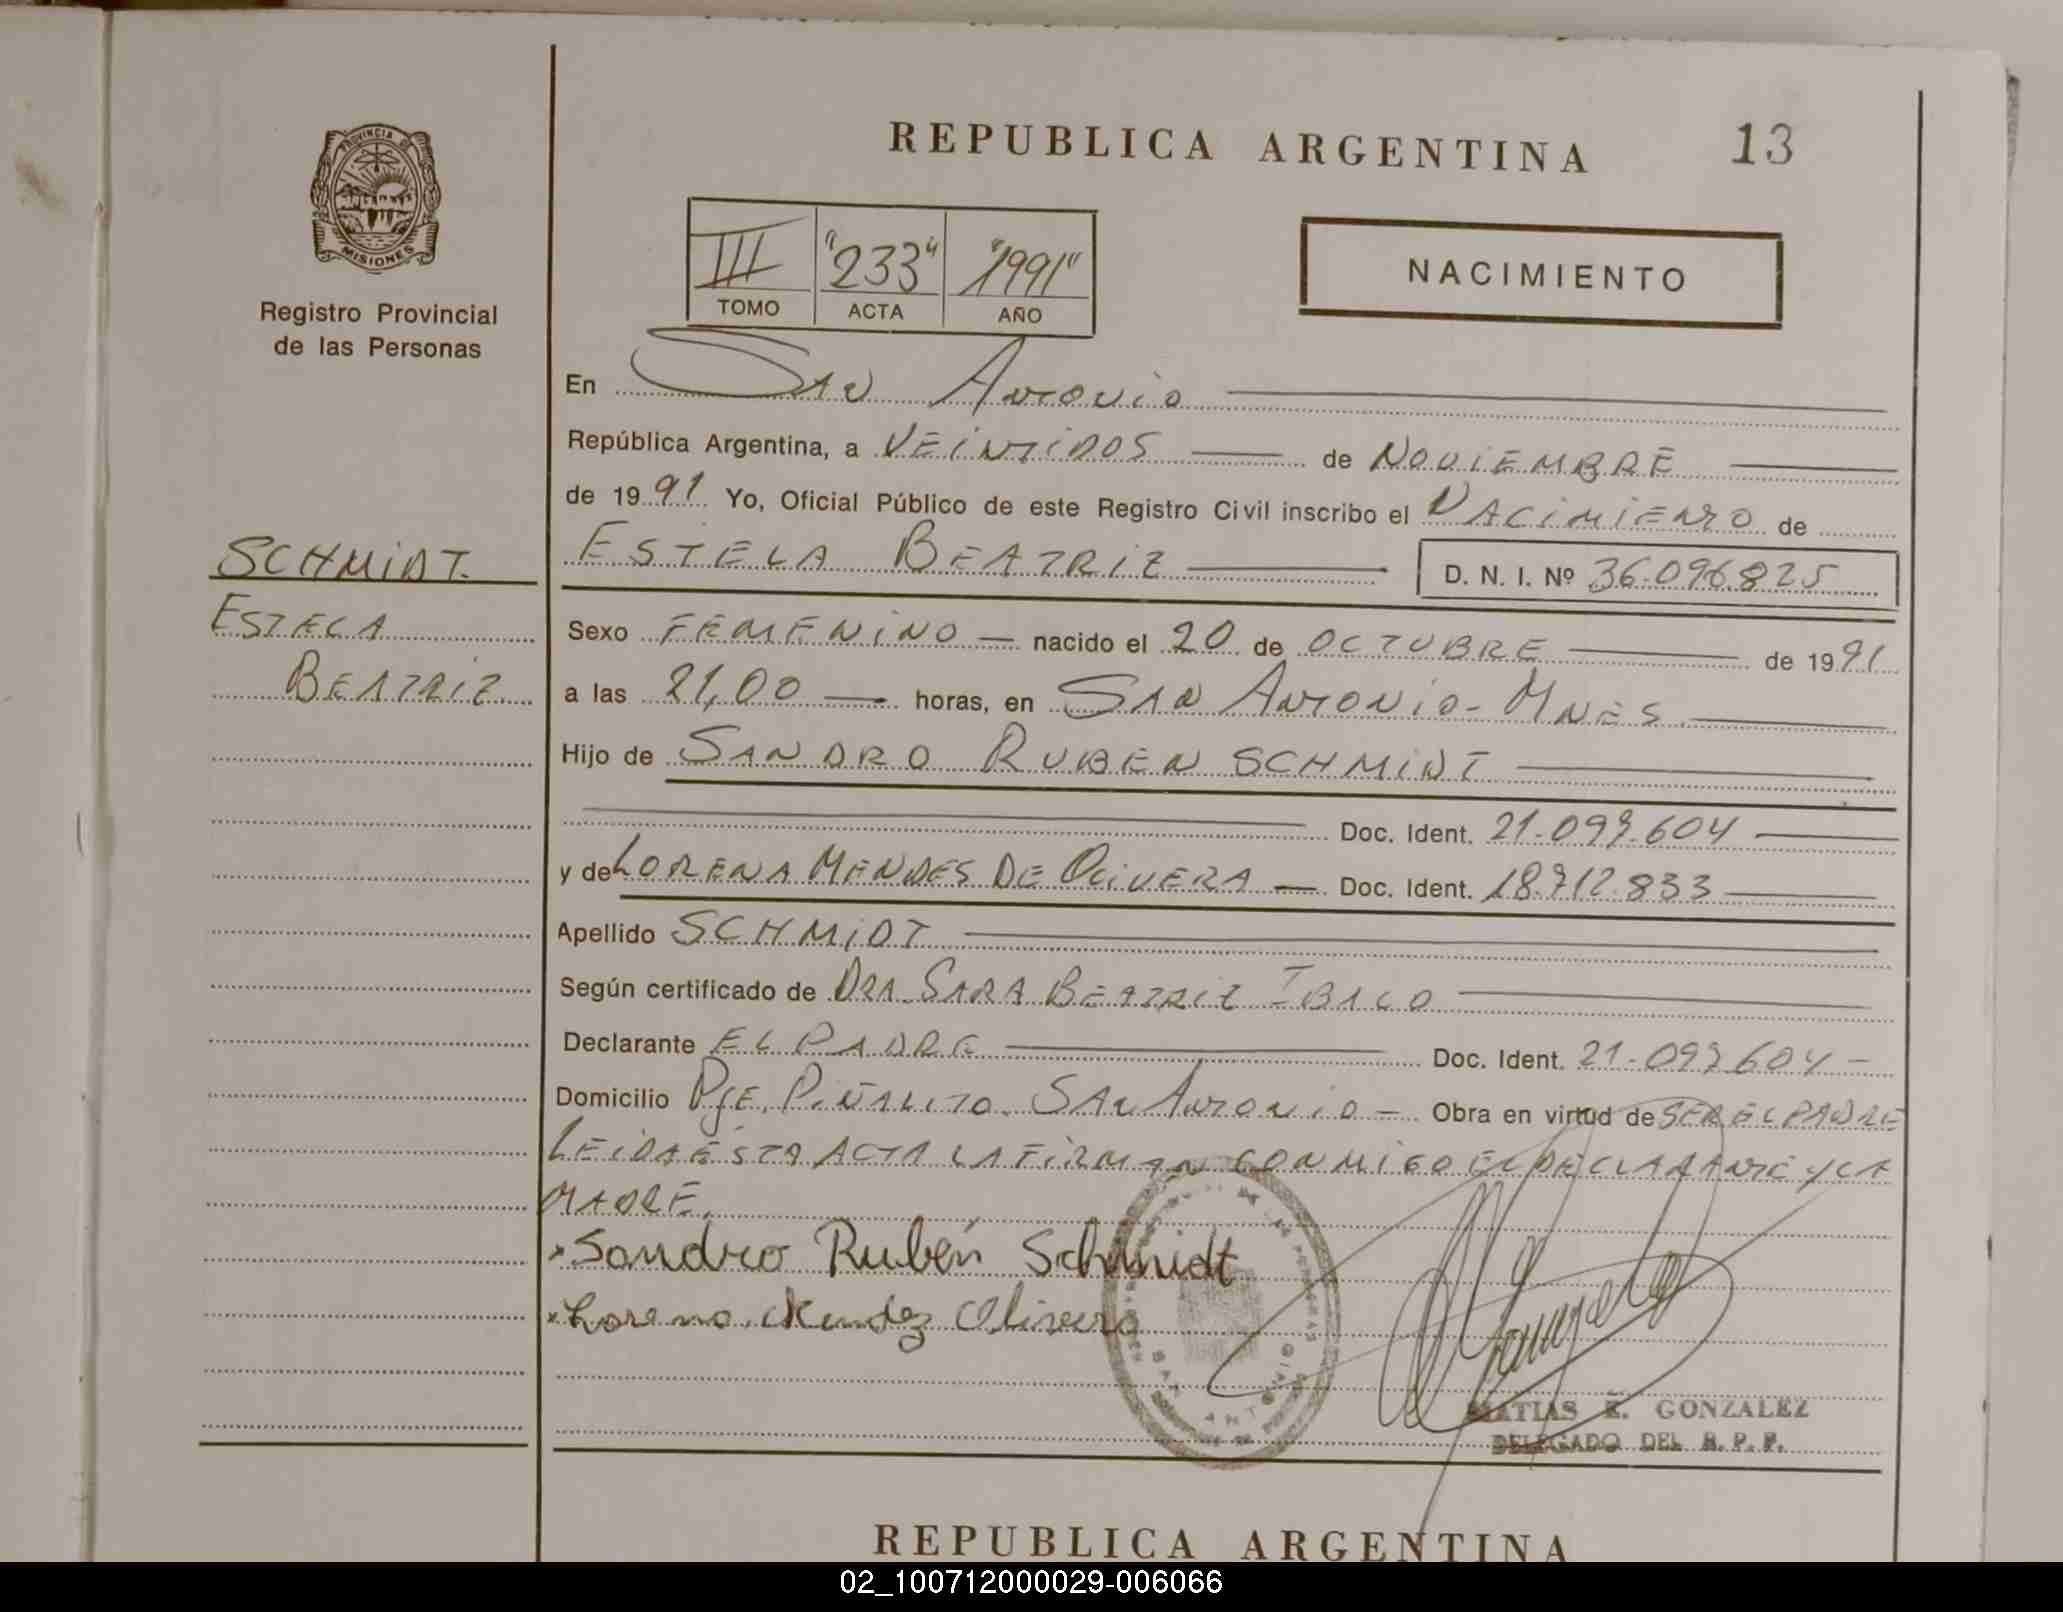 REPUBLICA ARGENTINA 13
PROVINCIA DE
MISIONES
Registro Provincial
de las Personas
III "233" "1991"
TOMO ACTA AÑO
NACIMIENTO
En San Antonio
República Argentina, a VEINTIDOS de NOVIEMBRE
de 1991 Yo, Oficial Público de este Registro Civil inscribo el NACIMIENTO de
SCHMIDT
ESTELA BEATRIZ D. N. I. Nº 36.096.825
ESTELA
Sexo FEMENINO nacido el 20 de OCTUBRE de 1991
BEATRIZ
a las 21,00 horas, en SAN ANTONIO - MNES
Hijo de SANDRO RUBEN SCHMIDT
Doc. Ident. 21.099.604
y de LORENA MENDES DE OLIVERA Doc. Ident. 18.712.833
Apellido SCHMIDT
Según certificado de DRA. SARA BEATRIZ
Declarante EL PADRE Doc. Ident. 21.099.604
Domicilio PJE. PIÑALITO. SAN ANTONIO Obra en virtud de SER EL PADRE
LEIDA ESTA ACTA LA FIRMAN CONMIGO EL DECLARANTE Y LA
MADRE.
Sandro Rubén Schmidt
Lorena Mendez Olivera
MATIAS E. GONZALEZ
DELEGADO DEL R. P. P.
REPUBLICA ARGENTINA
02_100712000029-006066